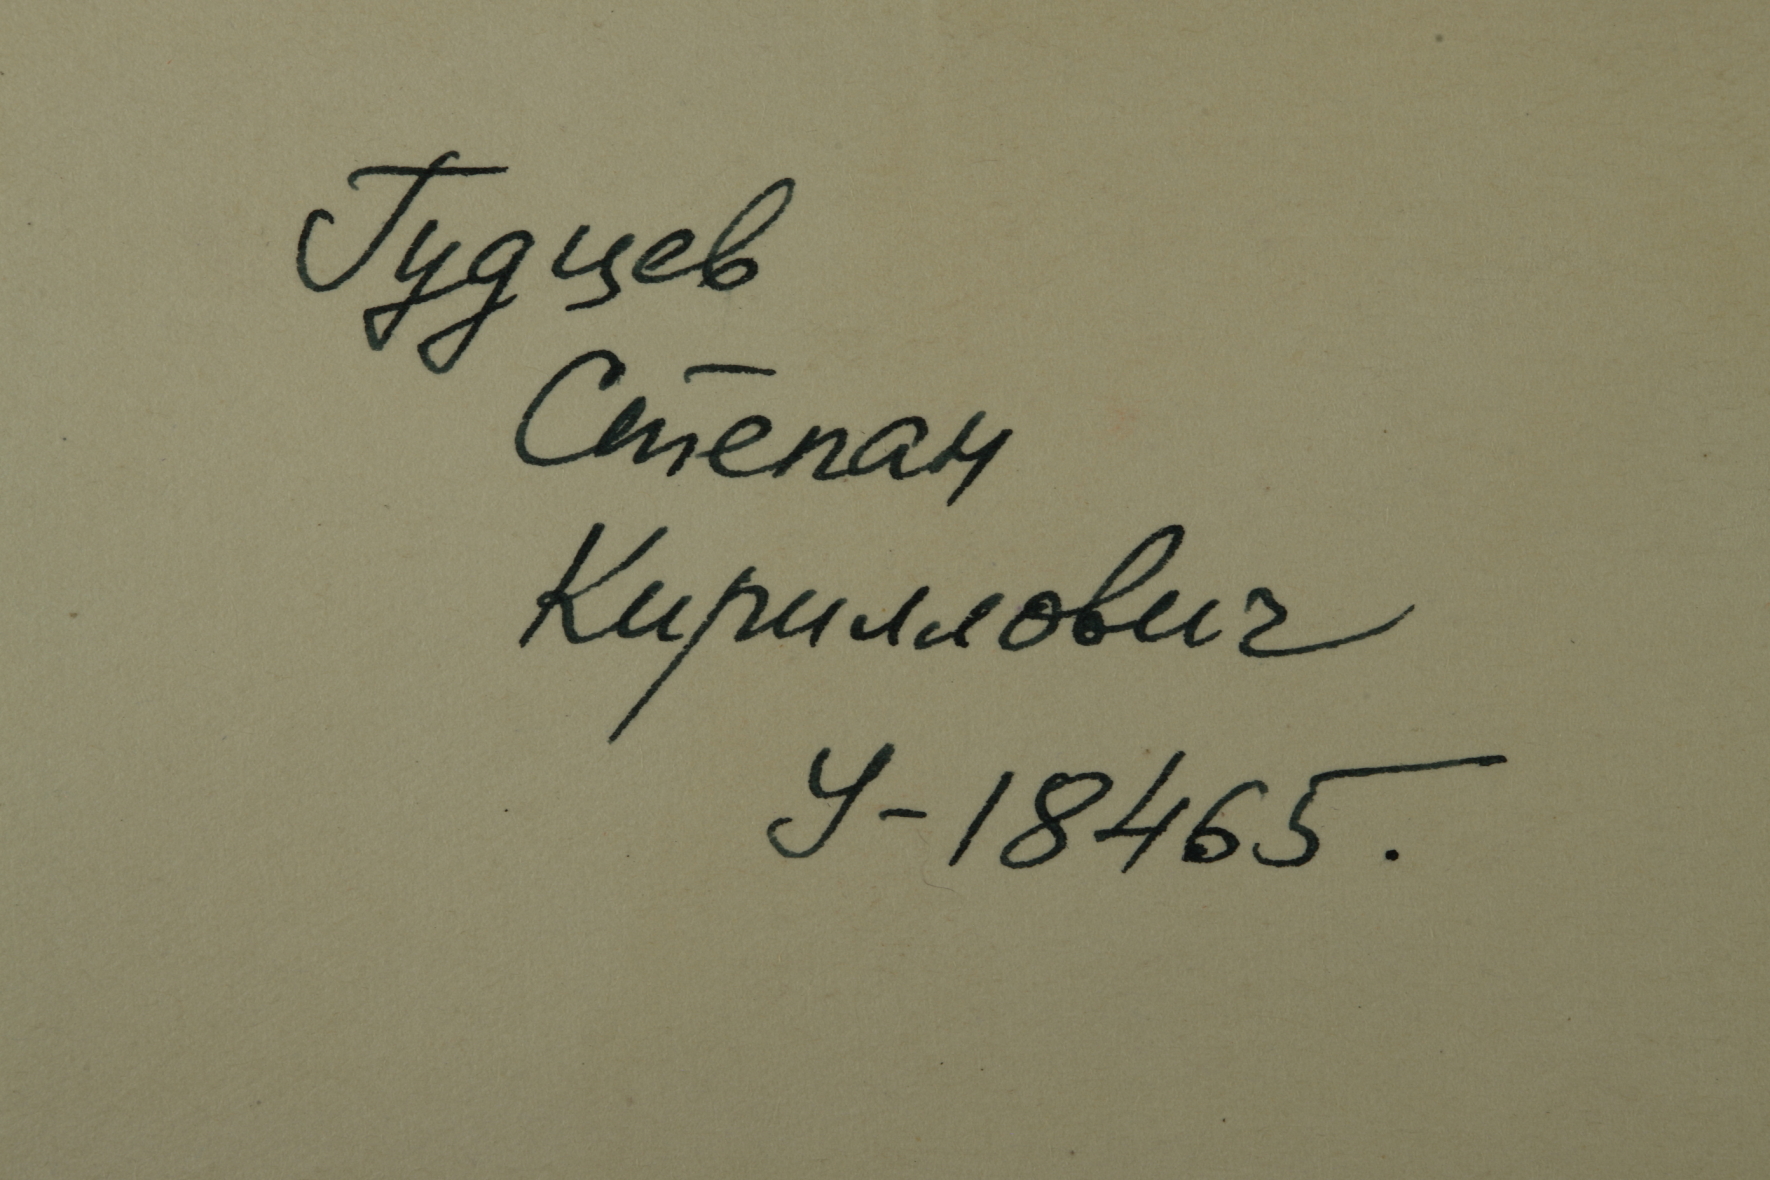 Гудцев
Степан
Кириллович
У-18465.